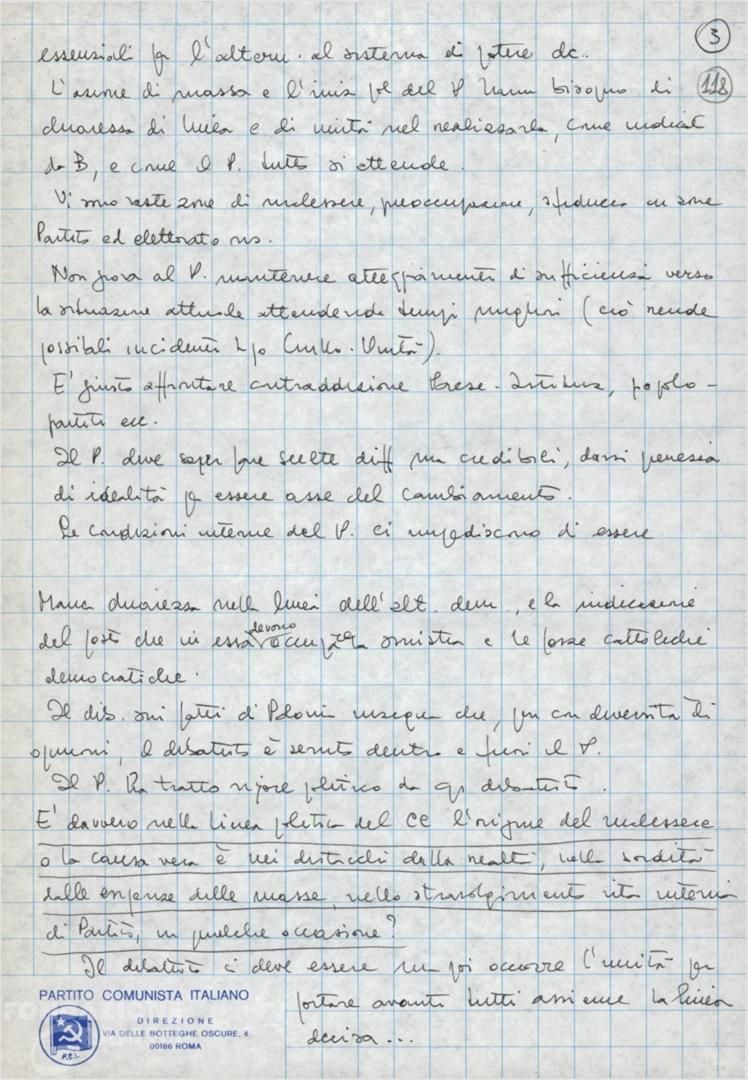 3
essenziali per l'altern. al sistema di potere dc.
118
L'azione di massa e l'iniz pol del P hanno bisogno di
chiarezza di linea e di unità nel realizzarla, come indicat
da B, e come il P. tutto si attende.
Vi sono vaste zone di malessere, preoccupazione, sfiducia in zone
Partito ed elettorato ns.
Non giova al P. mantenere atteggiamenti di sufficienza verso
la situazione attuale attendendo tempi migliori (ciò rende
possibili incidenti tipo Cirillo-Unità).
E' giusto affrontare contraddizione Paese-Istituz, popolo-
partiti ecc.
Il P. deve saper fare scelte diff ma credibili, darsi
di idealità per essere asse del cambiamento.
Le condizioni interne del P. ci impediscono di essere
Manca chiarezza nella linea dell'alt. dem., e la indicazione
del posto che in essa devono occupare la sinistra e le forze cattoliche
democratiche.
Il dib. sui fatti di Polonia insegna che, pur con diversità di
opinioni, il dibattito è servito dentro e fuori il P.
Il P. ha tratto vigore politico da qs dibattito.
E' davvero nella linea politica del CC l'origine del malessere
o la causa vera è nei distacchi dalla realtà, nella sordità
dalle esigenze delle masse, nello stravolgimento vita interna
di Partito, in qualche occasione?
Il dibattito ci deve essere ma poi occorre l'unità per
portare avanti tutti assieme la linea
decisa...
PARTITO COMUNISTA ITALIANO
DIREZIONE
VIA DELLE BOTTEGHE OSCURE, 4
00186 ROMA
P.C.I.